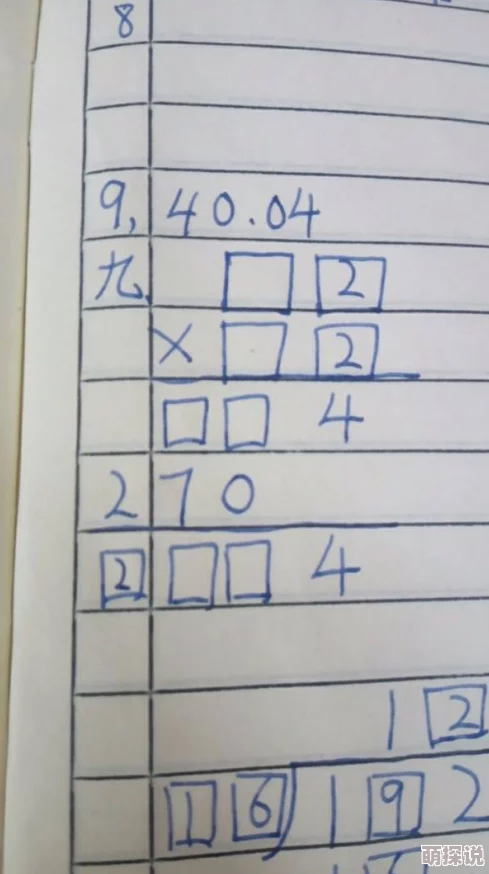 8
9, 40.04
九、 □ 2
× □ 2
□ □ 4
2 7 0
2 □ □ 4
1 2
1 6 ) 1 9 2
萌探说